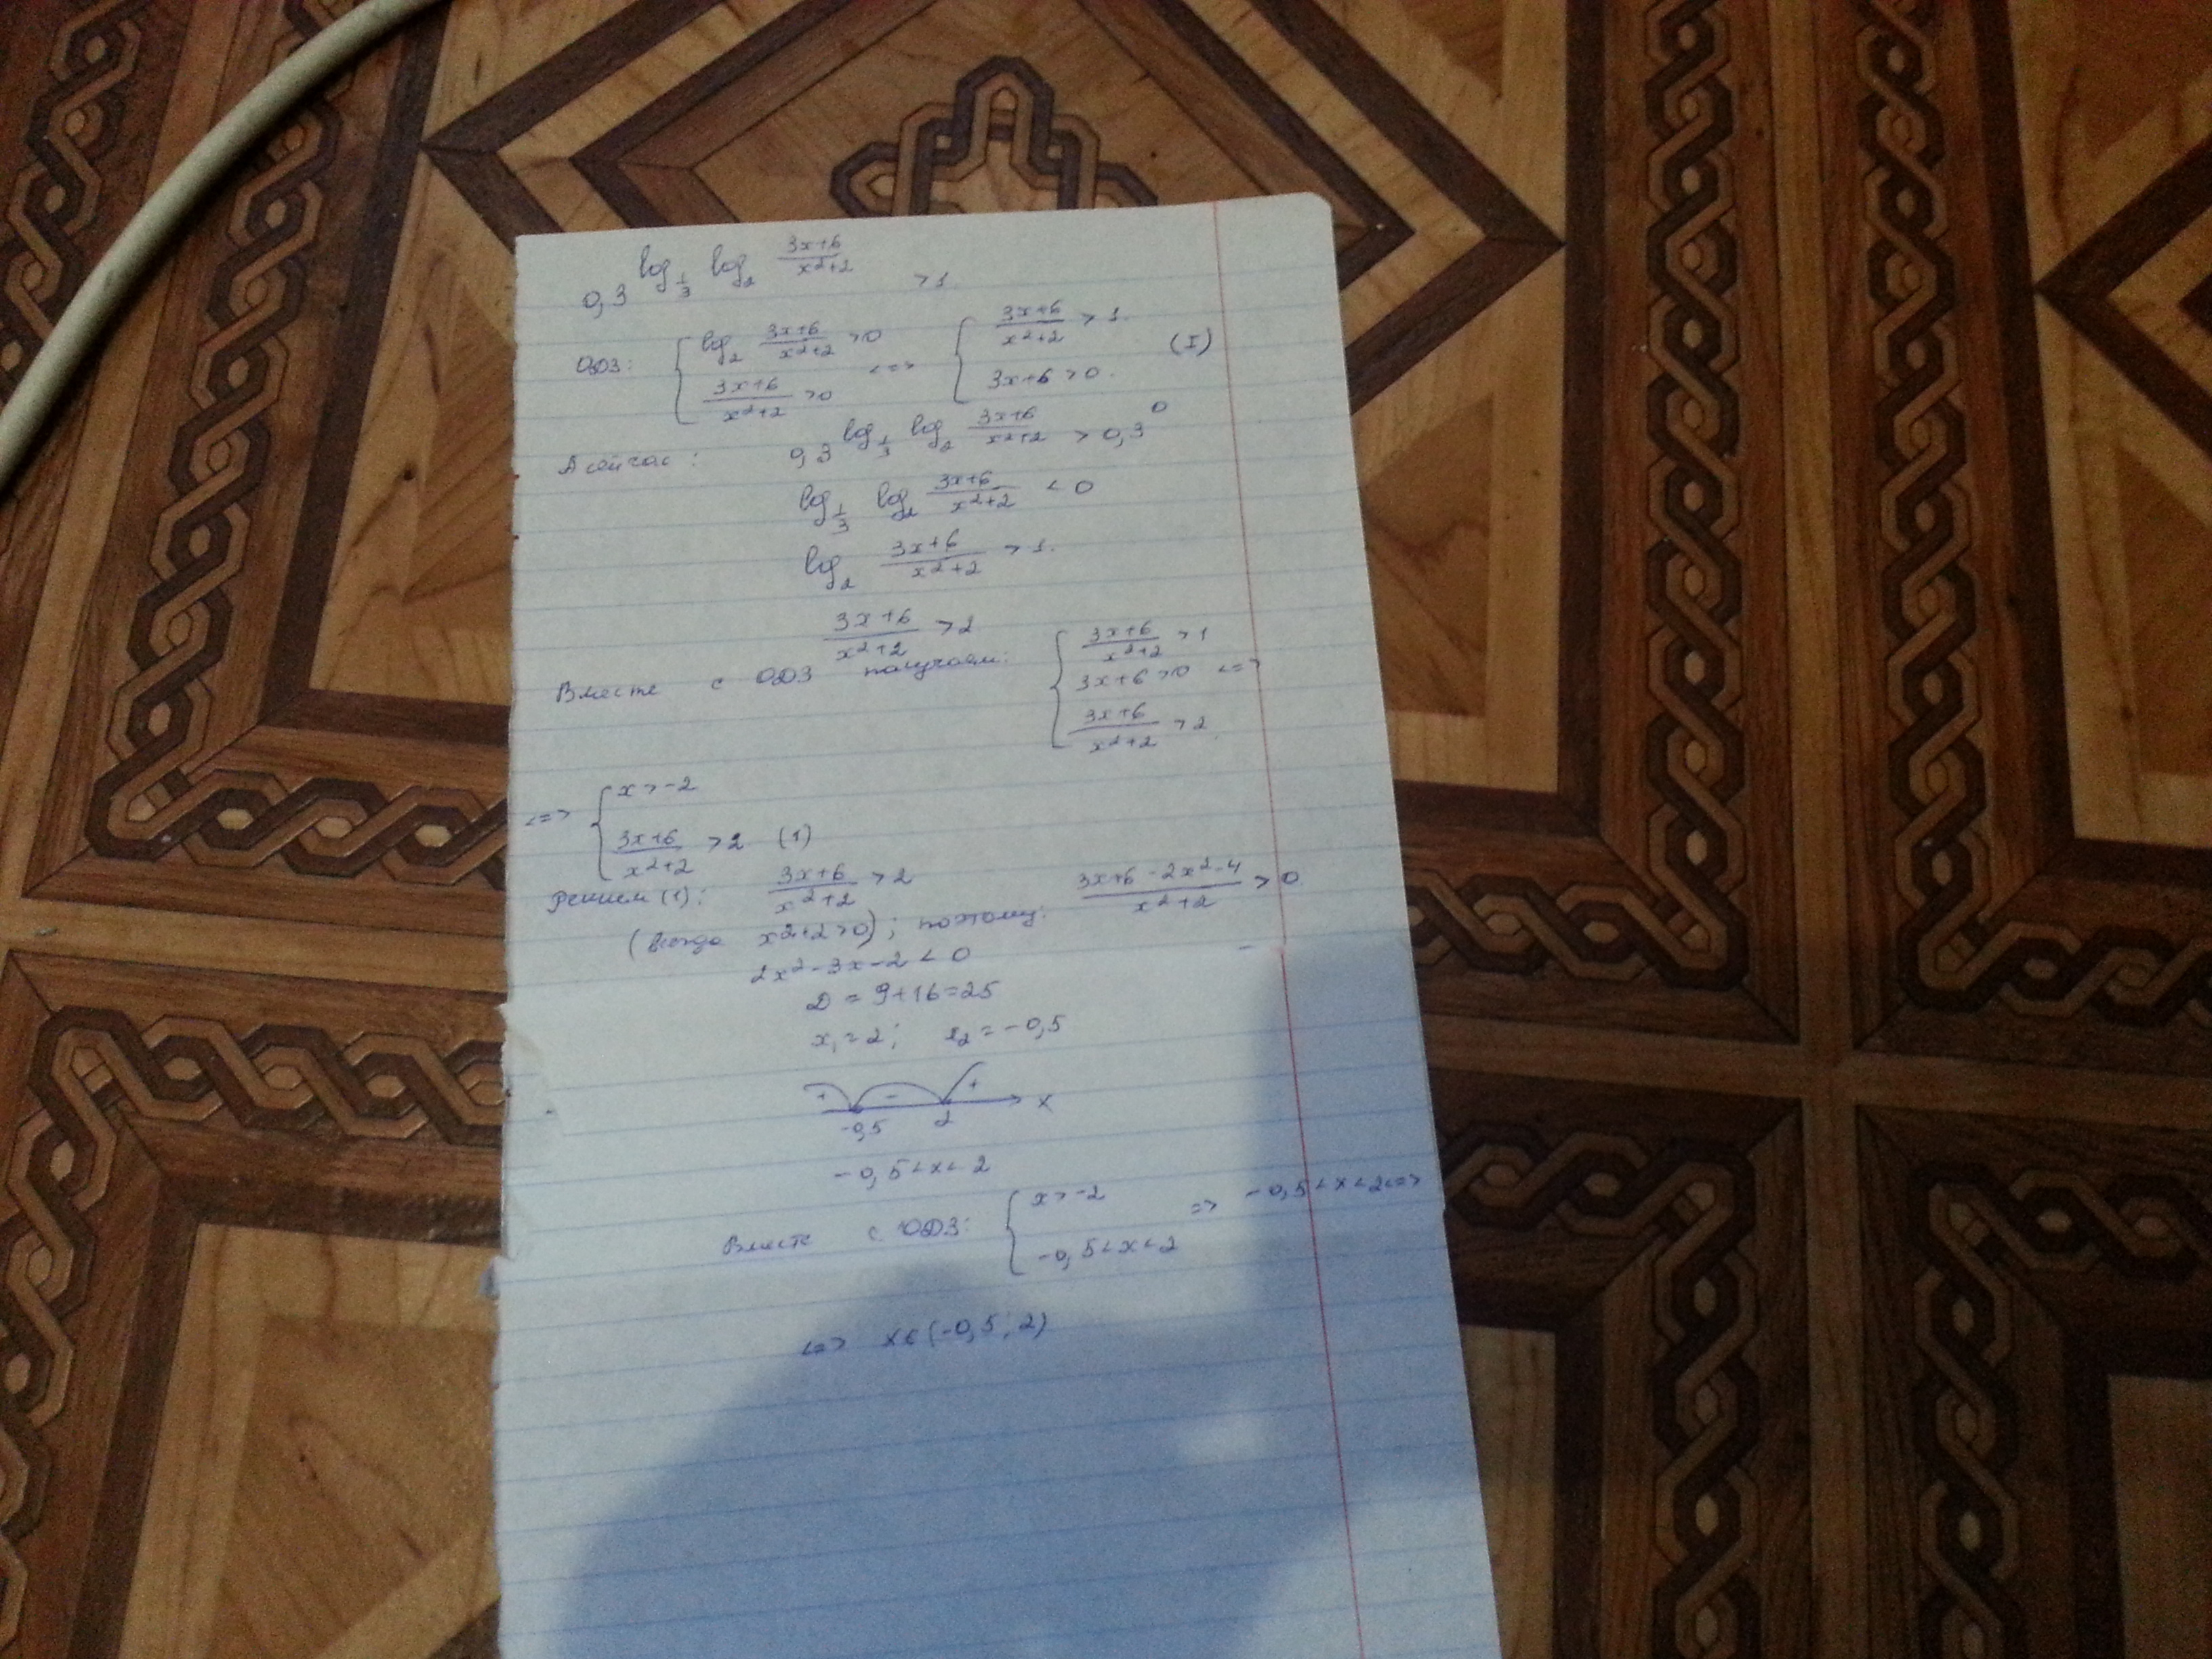 0,3^{log_{1/3} log_2 (3x+6)/(x²+2)} > 1.
ОДЗ: { log_2 (3x+6)/(x²+2) > 0 ; (3x+6)/(x²+2) > 0 <=> { (3x+6)/(x²+2) > 1. ; 3x+6 > 0. (I)
А сейчас: 0,3^{log_{1/3} log_2 (3x+6)/(x²+2)} > 0,3^0
log_{1/3} log_2 (3x+6)/(x²+2) < 0
log_2 (3x+6)/(x²+2) > 1.
(3x+6)/(x²+2) > 2
Вместе с ОДЗ получаем: { (3x+6)/(x²+2) > 1 ; 3x+6 > 0 ; (3x+6)/(x²+2) > 2 <=>
<=> { x > -2 ; (3x+6)/(x²+2) > 2 (1)
Решим (1): (3x+6)/(x²+2) > 2
(всегда x²+2>0); поэтому: (3x+6-2x²-4)/(x²+2) > 0
2x²-3x-2 < 0
D = 9+16=25
x₁=2; x₂=-0,5
+ - + x
-0,5 2
-0,5<x<2
Вместе с ОДЗ: { x > -2 ; -0,5<x<2 => -0,5<x<2 <=>
<=> x∈(-0,5; 2)